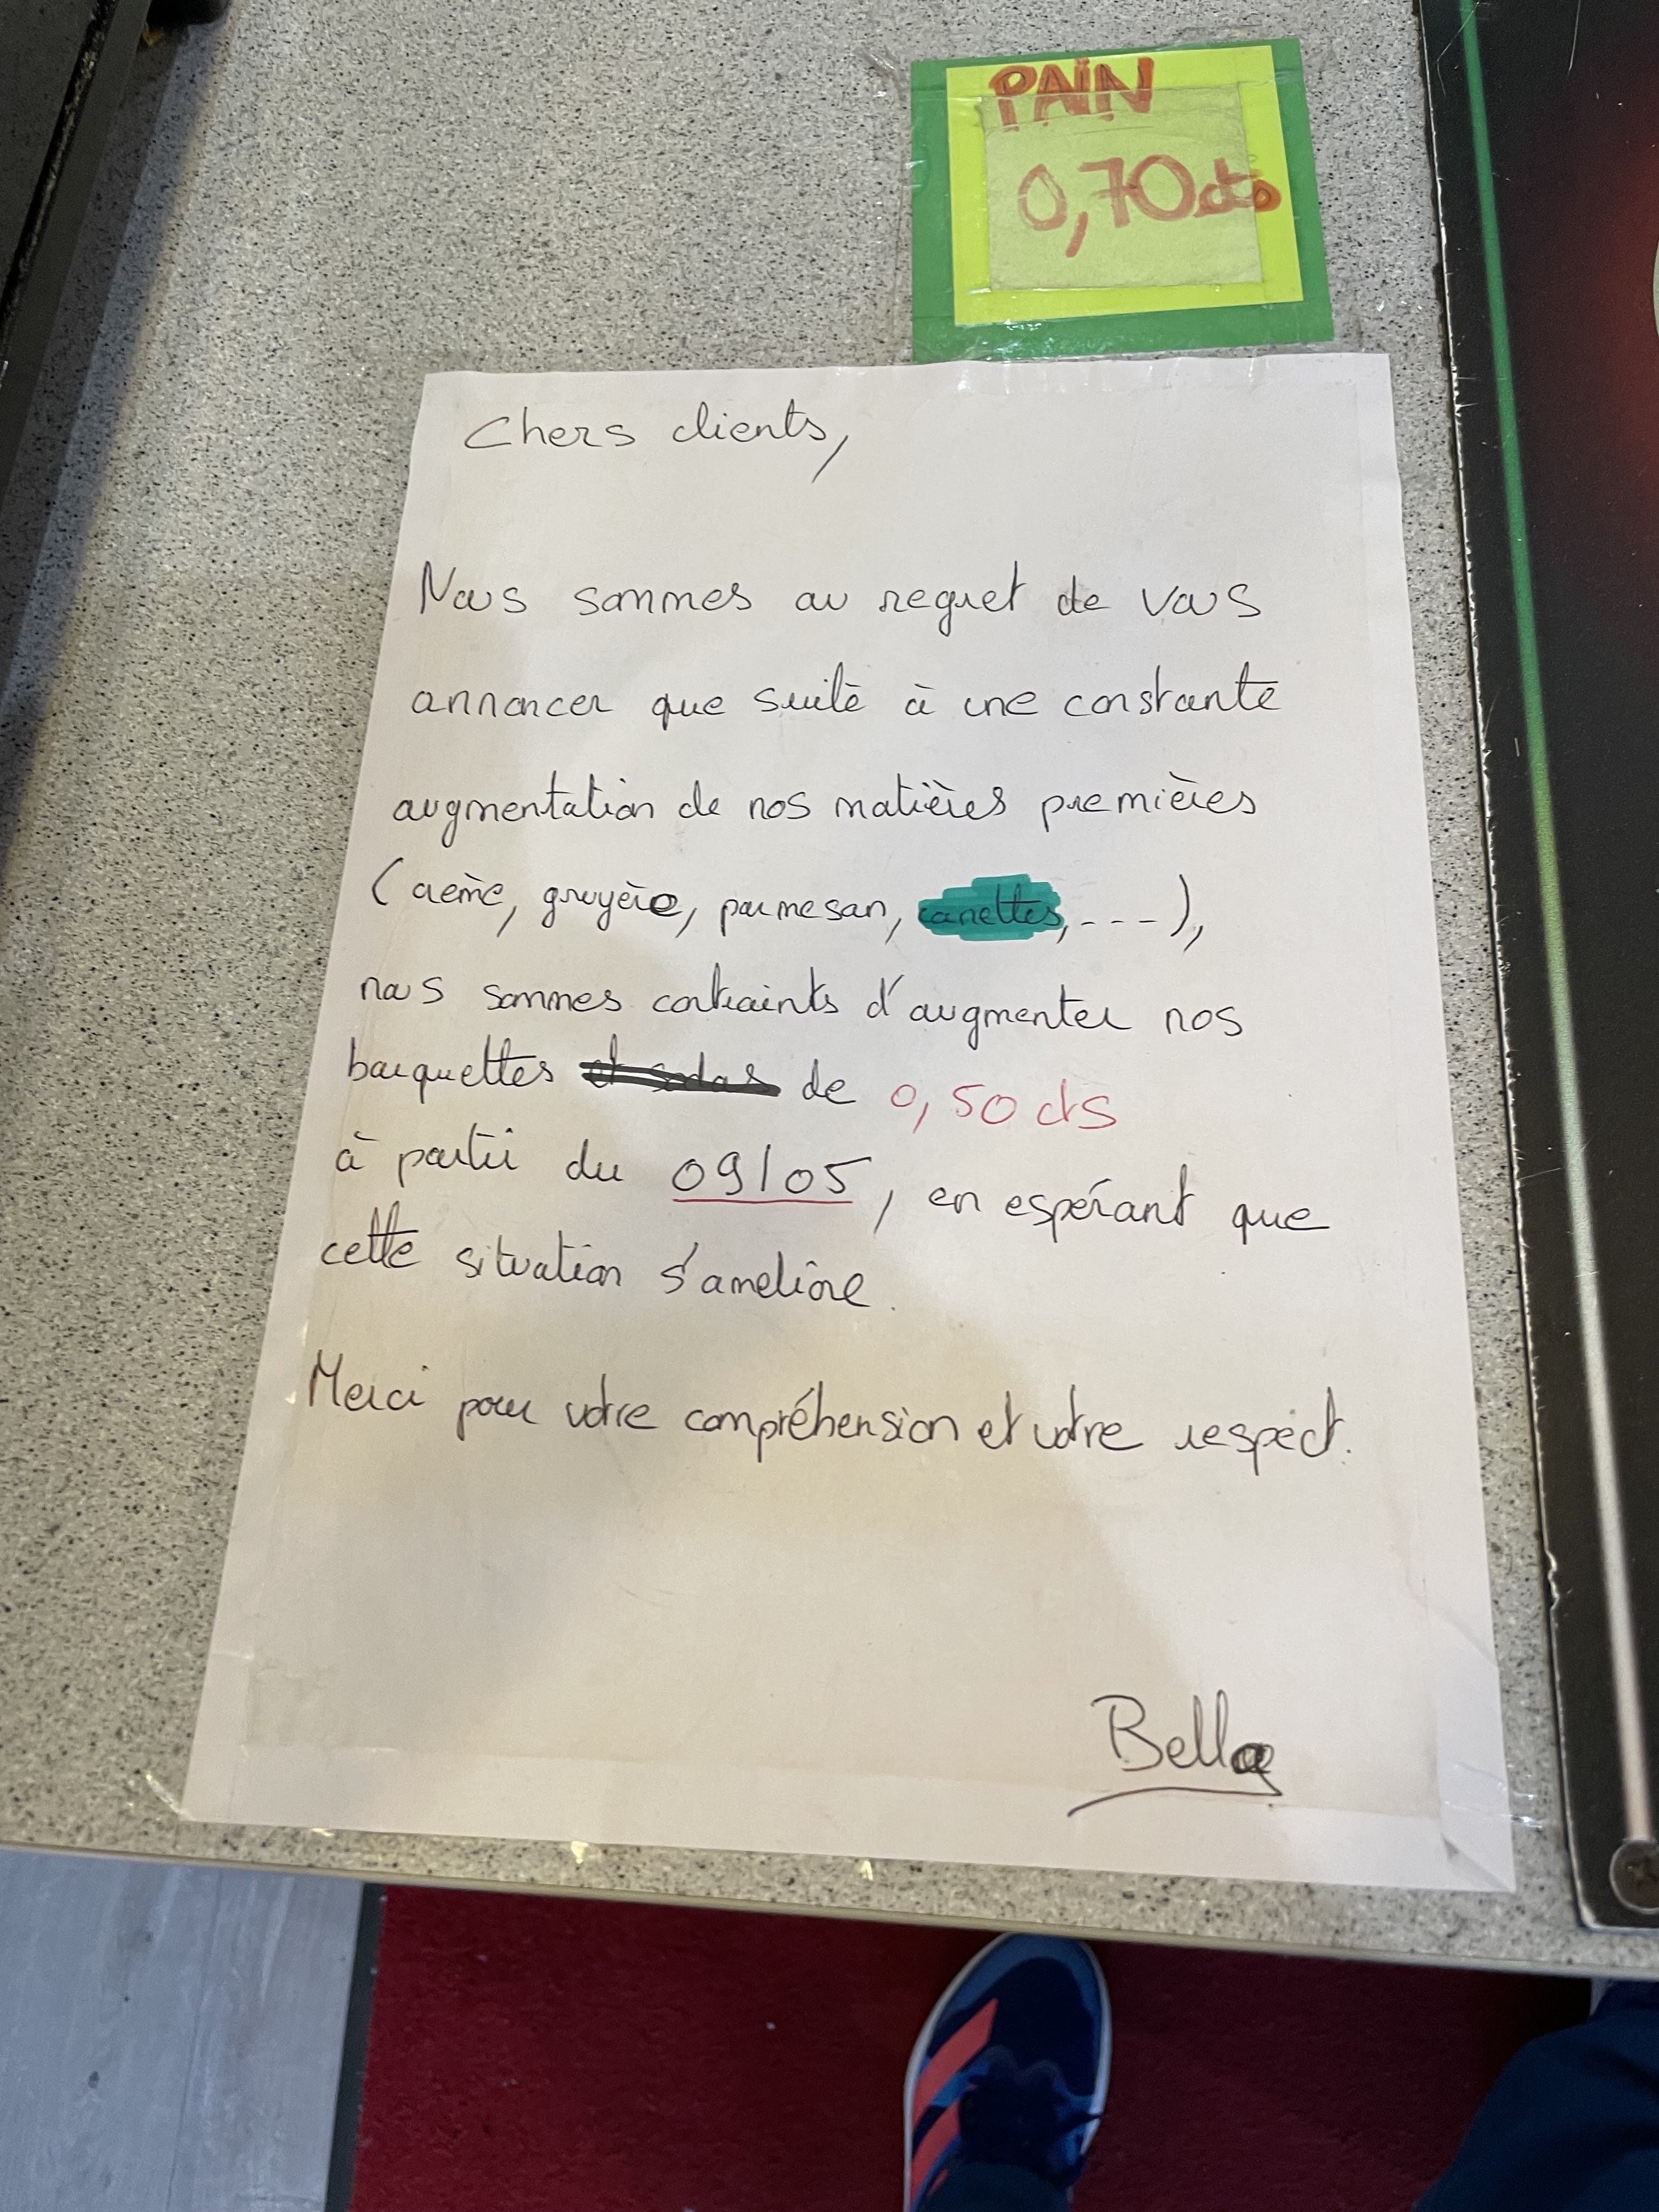 PAIN
0,70cts
Chers clients,
Nous sommes au regret de vous
annoncer que suite à une constante
augmentation de nos matières premières
(crème, gruyère, parmesan, canettes, ---),
nous sommes contraints d'augmenter nos
barquettes et sodas de 0,50 cts
à partir du 09/05, en espérant que
cette situation s'améliore.
Merci pour votre compréhension et votre respect.
Bella